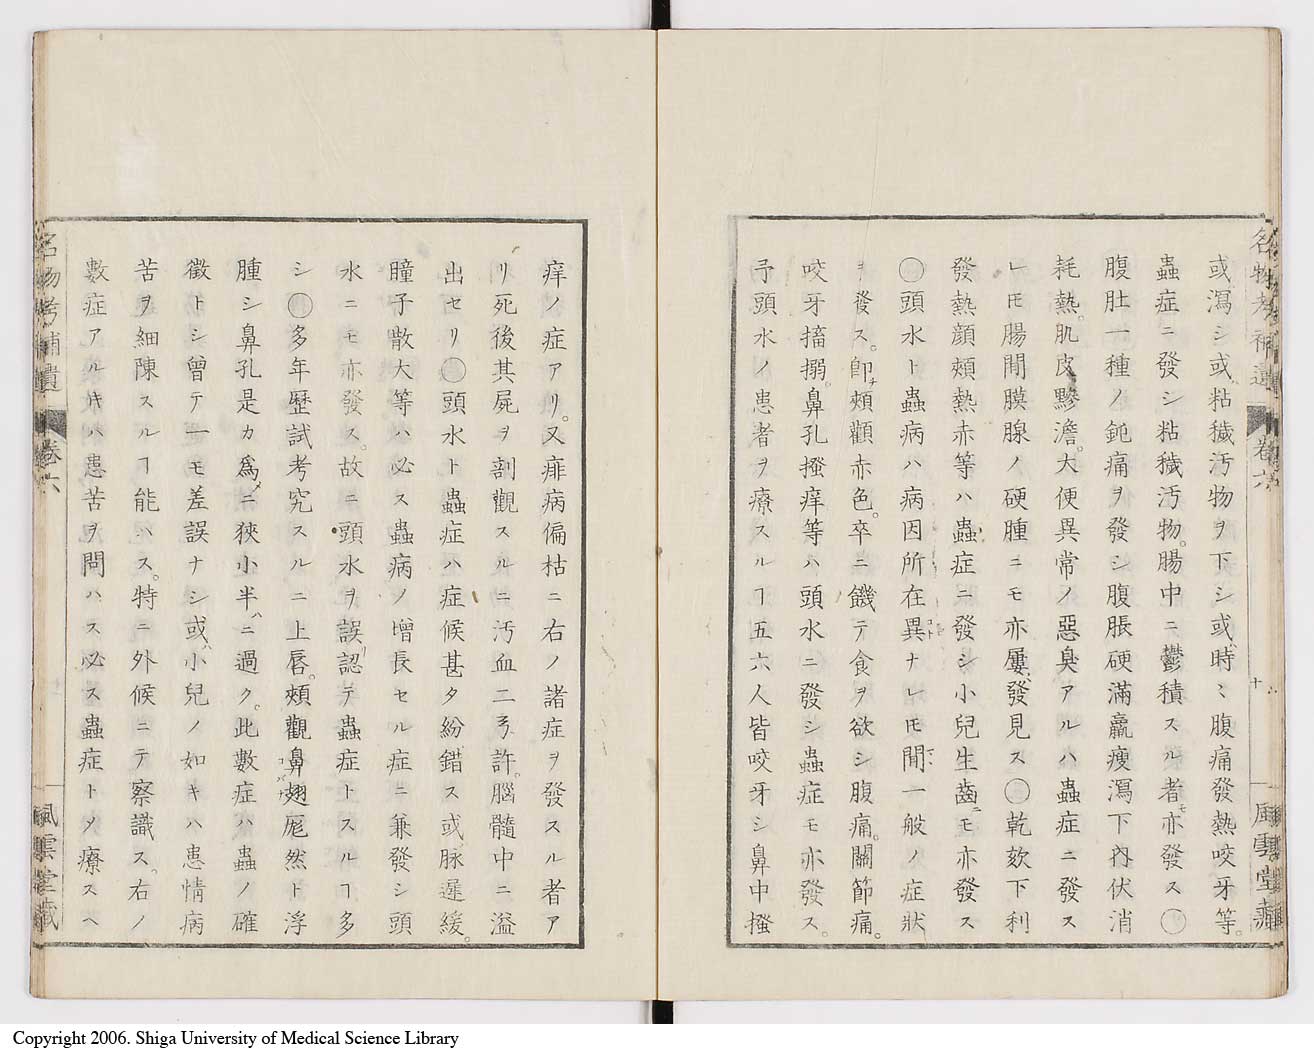 名物考補遺 卷六 十 風雲堂藏
或瀉シ或粘穢汚物ヲ下シ或時〻腹痛發熱咬牙等。
蟲症ニ發シ粘穢汚物。腸中ニ鬱積スル者モ亦發ス〇
腹肚一種ノ鈍痛ヲ發シ腹脹硬滿羸瘦瀉下內伏消
耗熱。肌皮黲澹。大便異常ノ惡臭アルハ蟲症ニ發ス
レ𪜈腸間膜腺ノ硬腫ニモ亦屢發見ス〇乾欬下利
發熱顔頰熱赤等ハ蟲症ニ發シ小兒生齒ニモ亦發ス
〇頭水ト蟲病ハ病因所在異ナレ𪜈間一般ノ症狀
ヲ發ス。卽チ頰顴赤色。卒ニ饑テ食ヲ欲シ腹痛。關節痛。
咬牙搐搦。鼻孔搔痒等ハ頭水ニ發シ蟲症モ亦發ス。
予頭水ノ患者ヲ療スルヿ五六人皆咬牙シ鼻中搔
痒ノ症アリ。又痱病偏枯ニ右ノ諸症ヲ發スル者ア
リ死後其屍ヲ剖觀スルニ汚血二弓許。腦髓中ニ溢
出セリ〇頭水ト蟲症ハ症候甚タ紛錯ス或脉遲緩。
瞳子散大等ハ必ス蟲病ノ增長セル症ニ兼發シ頭
水ニモ亦發ス。故ニ頭水ヲ誤認テ蟲症トスルヿ多
シ〇多年歷試考究スルニ上唇。頰顴鼻翅厖然ト浮
腫シ鼻孔是カ爲メニ狹小半ハニ過ク。此數症ハ蟲ノ確
徵トシ曾テ一モ差誤ナシ或ハ小兒ノ如キハ患情病
苦ヲ細陳スルヿ能ハス。特ニ外候ニテ察識ス。右ノ
數症アルキハ患苦ヲ問ハス必ス蟲症トノ療スヘ
名物考補遺 卷六 風雲堂藏
Copyright 2006. Shiga University of Medical Science Library